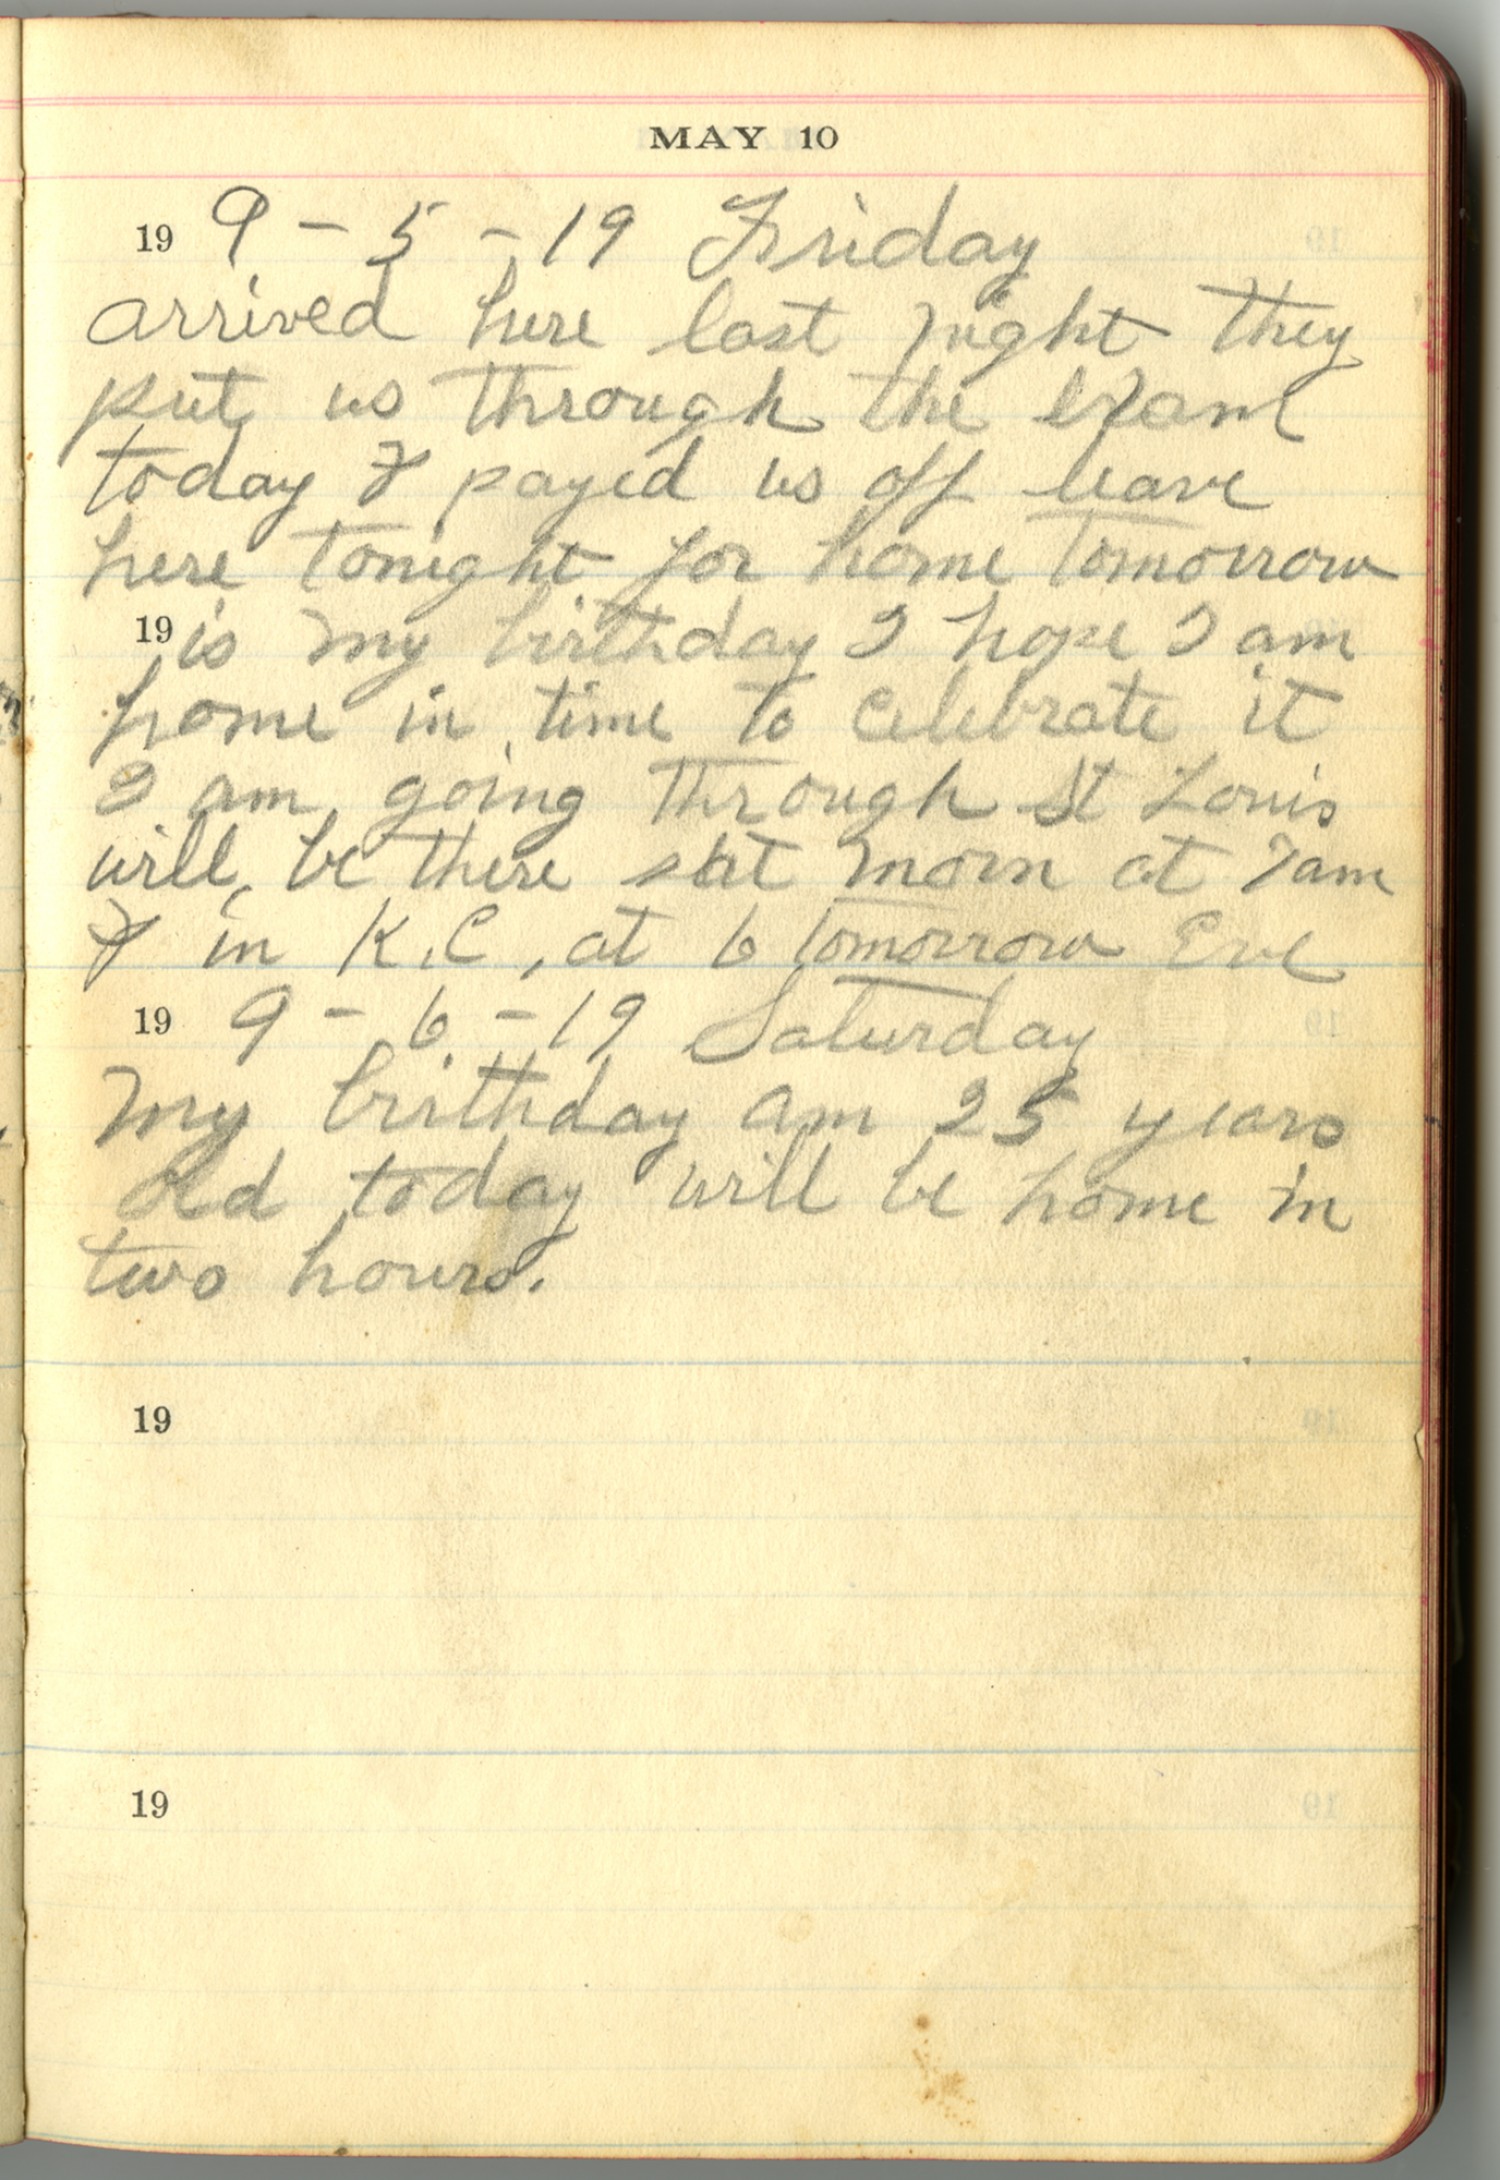 MAY 10
19 9 - 5 - 19 Friday
arrived here last night they
put us through the exam
today & payed us off leave
here tonight for home tomorrow
19 is my birthday I hope I am
home in time to celebrate it
I am going through St Louis
will be there sat morn at 7am
& in K.C, at 6 tomorrow Eve
19 9 - 6 - 19 Saturday
My birthday am 25 years
old today will be home in
two hours.
19
19